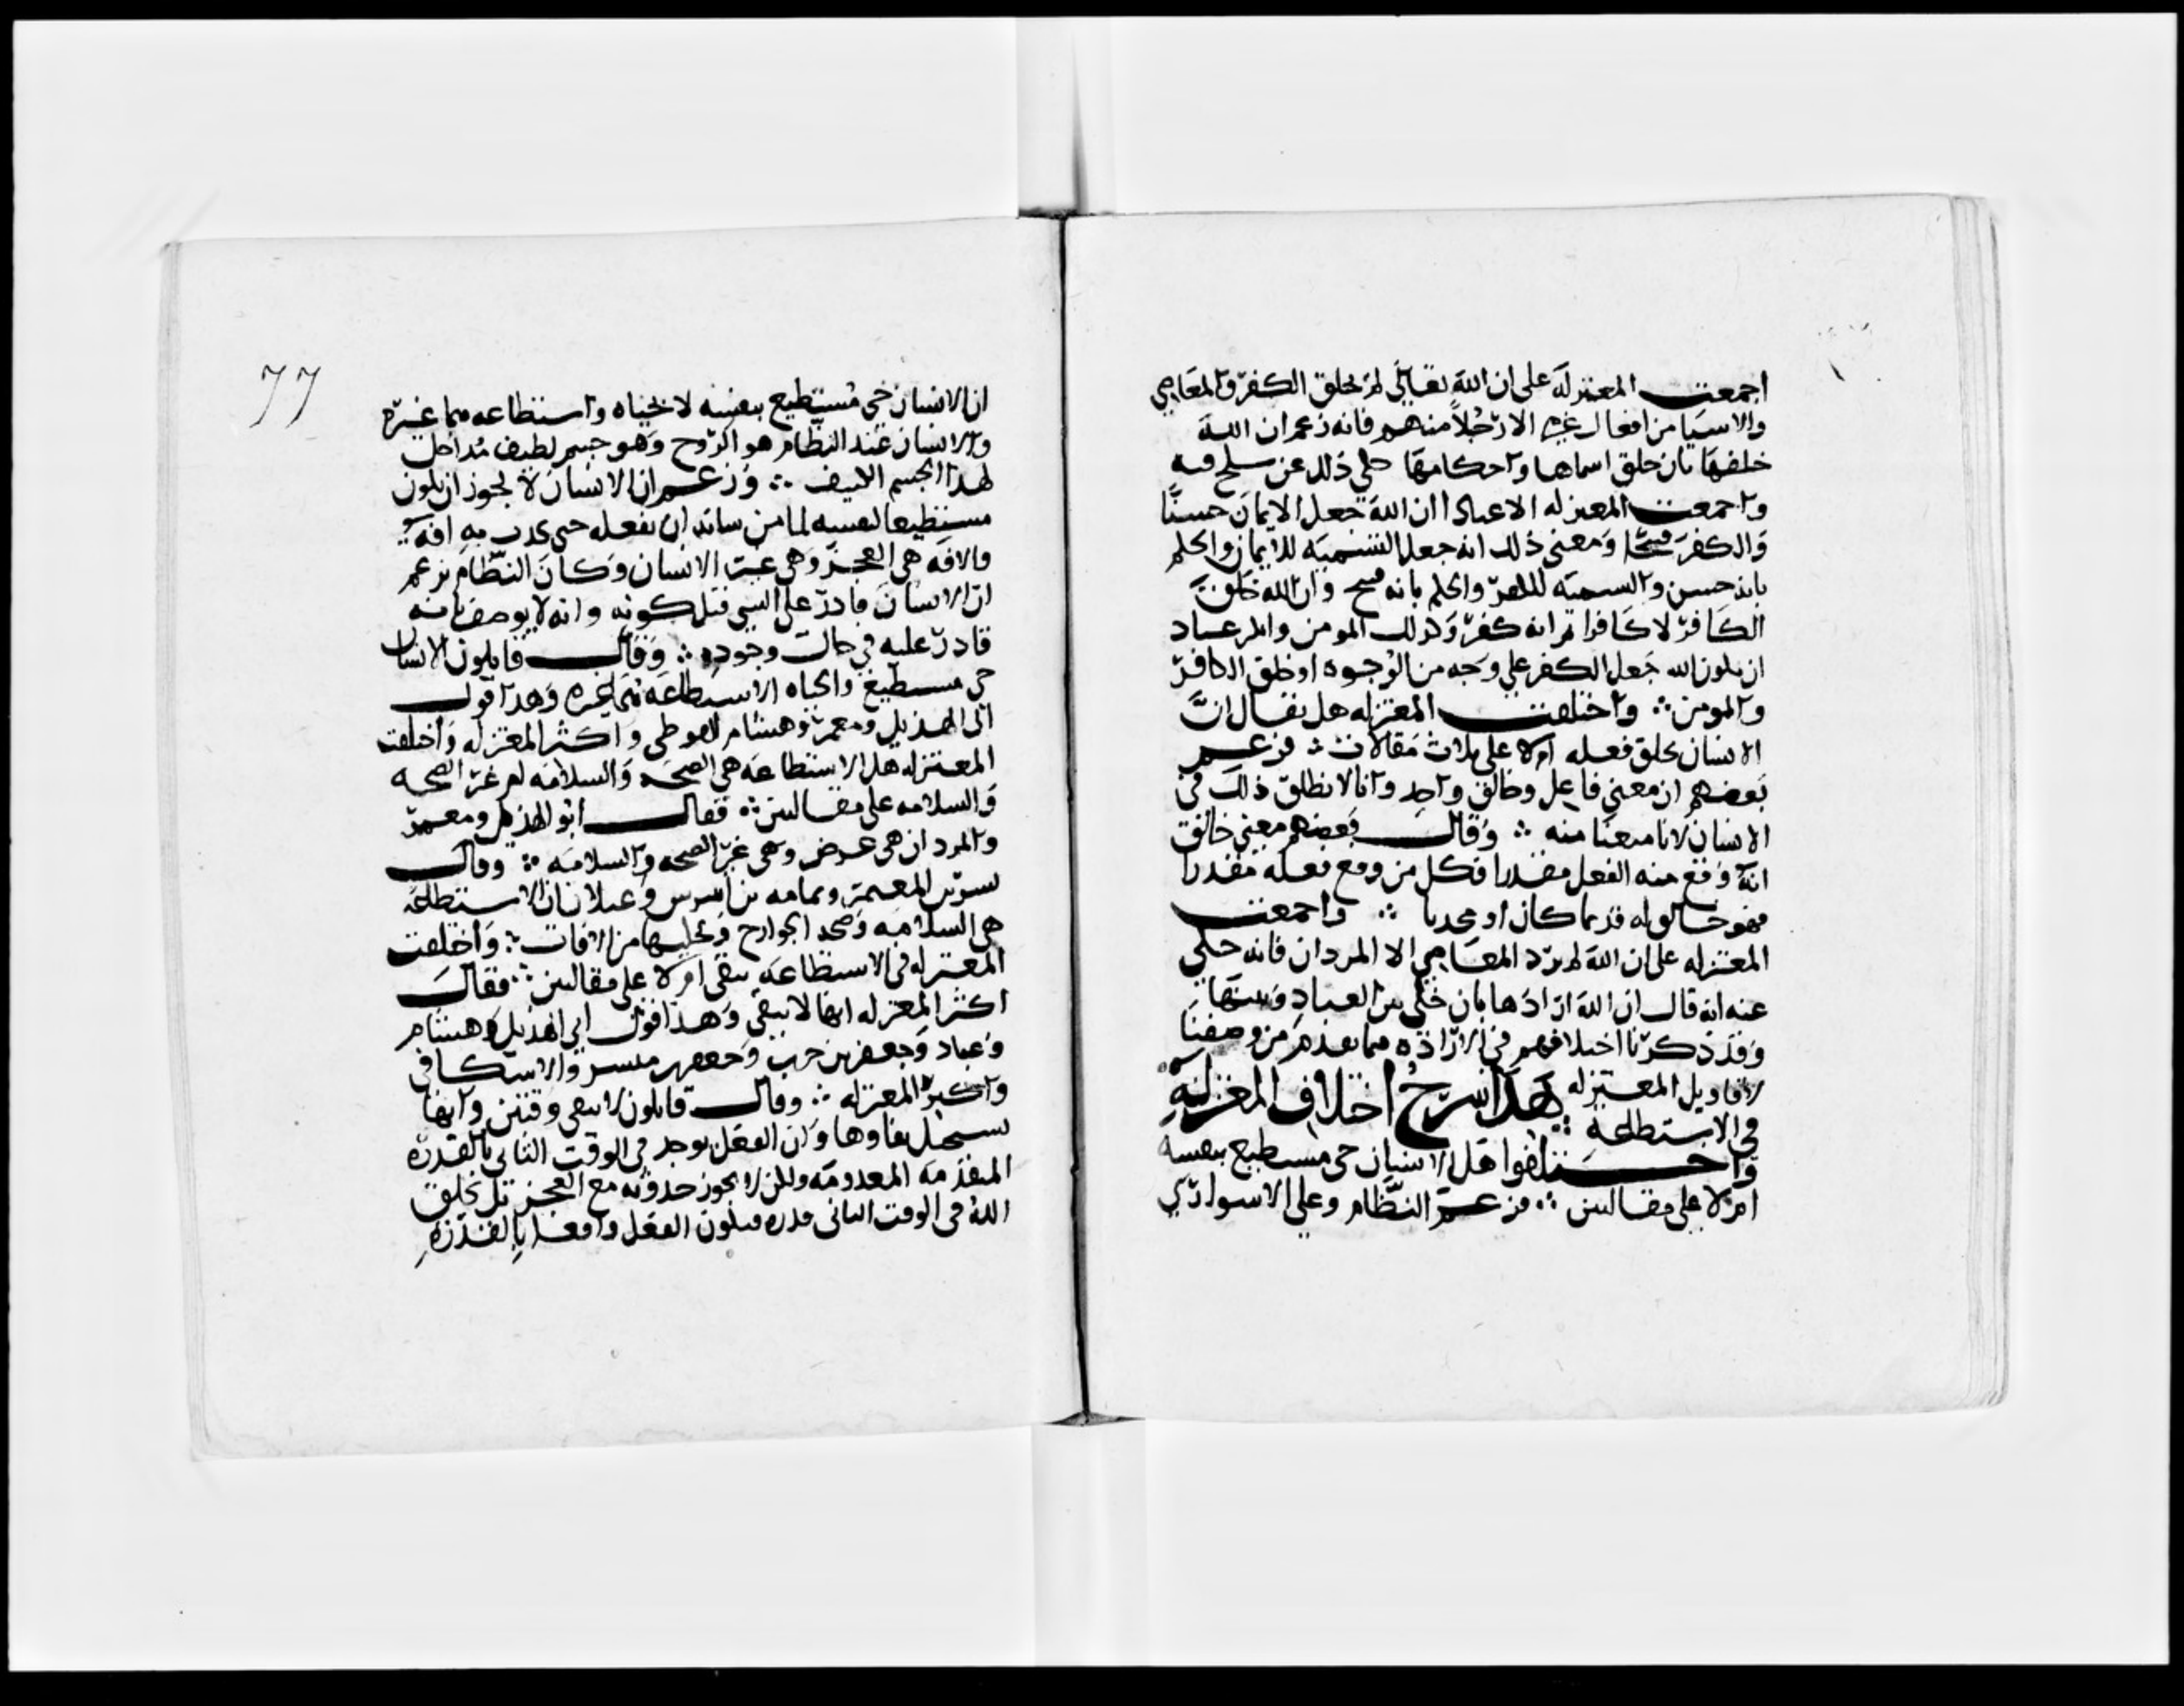 اجمعت المعتزلة على ان الله تعالى لم يخلق الكفر والمعاصي
والاشيا من افعال غيره الا رجلاً منهم فانه زعم ان الله
خلقها بان خلق اسماها واحكامها حكي ذلك عن صلح قبه
واجمعت المعتزله الا عبادا ان الله جعل الايمان حسنًا
والكفر قبيحًا ومعنى ذلك انه جعل التسميه للايمان والحكم
بانه حسن والتسميه للكفر والحكم بانه قبيح وان الله خلق
الكافر لا كافرا ثم انه كفر وكذلك المومن وانكر عباد
ان يكون الله جعل الكفر على وجه من الوجوه او خلق الكافر
والمومن ∴ واختلفت المعتزله هل يقال ان
الانسان يخلق فعله ام لا على ثلاث مقالات ∴ فزعم
بعضهم ان معنى فاعل وخالق واحد وانا لا نطلق ذلك في
الانسان لانا منعنا منه ∴ وقال بعضهم معنى خالق
انه وقع منه الفعل مقدرا فكل من وقع فعله مقدرا
فهو خالق له قديما كان او محدثا ∴ واجمعت
المعتزله على ان الله لم يرد المعاصي الا المردار فانه حكي
عنه انه قال ان الله ارادها بان خلى بين العباد وبينها
وقد ذكرنا اختلافهم في الارادة فيما تقدم من وصفنا
لاقاويل المعتزله هذا شرح اختلاف المعتزلة
في الاستطاعة ∴
واختلفوا هل الانسان حي مستطيع بنفسه
ام لا على مقالتين ∴ فزعم النظام وعلي الاسواري
77
ان الانسان حي مستطيع بنفسه لا بحياه واستطاعه هما غيره
والانسان عند النظام هو الروح وهو جسم لطيف مداخل
لهذا الجسم الكثيف ∴ وزعم ان الانسان لا يجوز ان يكون
مستطيعا لنفسه لما من شانه ان يفعله حتى يحدث به افة
والافه هي العجز وهي غير الانسان وكان النظام يزعم
ان الانسان قادر على الشي قبل كونه وانه لا يوصف بانه
قادر عليه في حال وجوده ∴ وقال قايلون الانسان
حي مستطيع والحياه والاستطاعه هما غيره وهذا قول
ابي الهذيل ومعمر وهشام الفوطي واكثر المعتزله واختلفت
المعتزله هل الاستطاعه هي الصحه والسلامه ام غير الصحه
والسلامه على مقالتين ∴ فقال ابو الهذيل ومعمر
والمردار هي عرض وهي غير الصحه والسلامه ∴ وقال
بشر بن المعتمر وثمامه بن اشرس وغيلان ان الاستطاعة
هي السلامه وصحه الجوارح وتخليها من الافات ∴ واختلفت
المعتزله في الاستطاعه تبقى ام لا على مقالتين ∴ فقال
اكثر المعتزله انها تبقى وهذا قول ابي الهذيل وهشام
وعباد وجعفر بن حرب وجعفر بن مبشر والاسكافي
واكثر المعتزله ∴ وقال قايلون لا تبقى وقتين وانها
يستحيل بقاوها وان الفعل يوجد في الوقت الثاني بالقدرة
المتقدمه المعدومه ولكن لا يجوز حدوثه مع العجز بل يخلق
الله في الوقت الثاني قدره فيكون الفعل واقعا بالقدرة